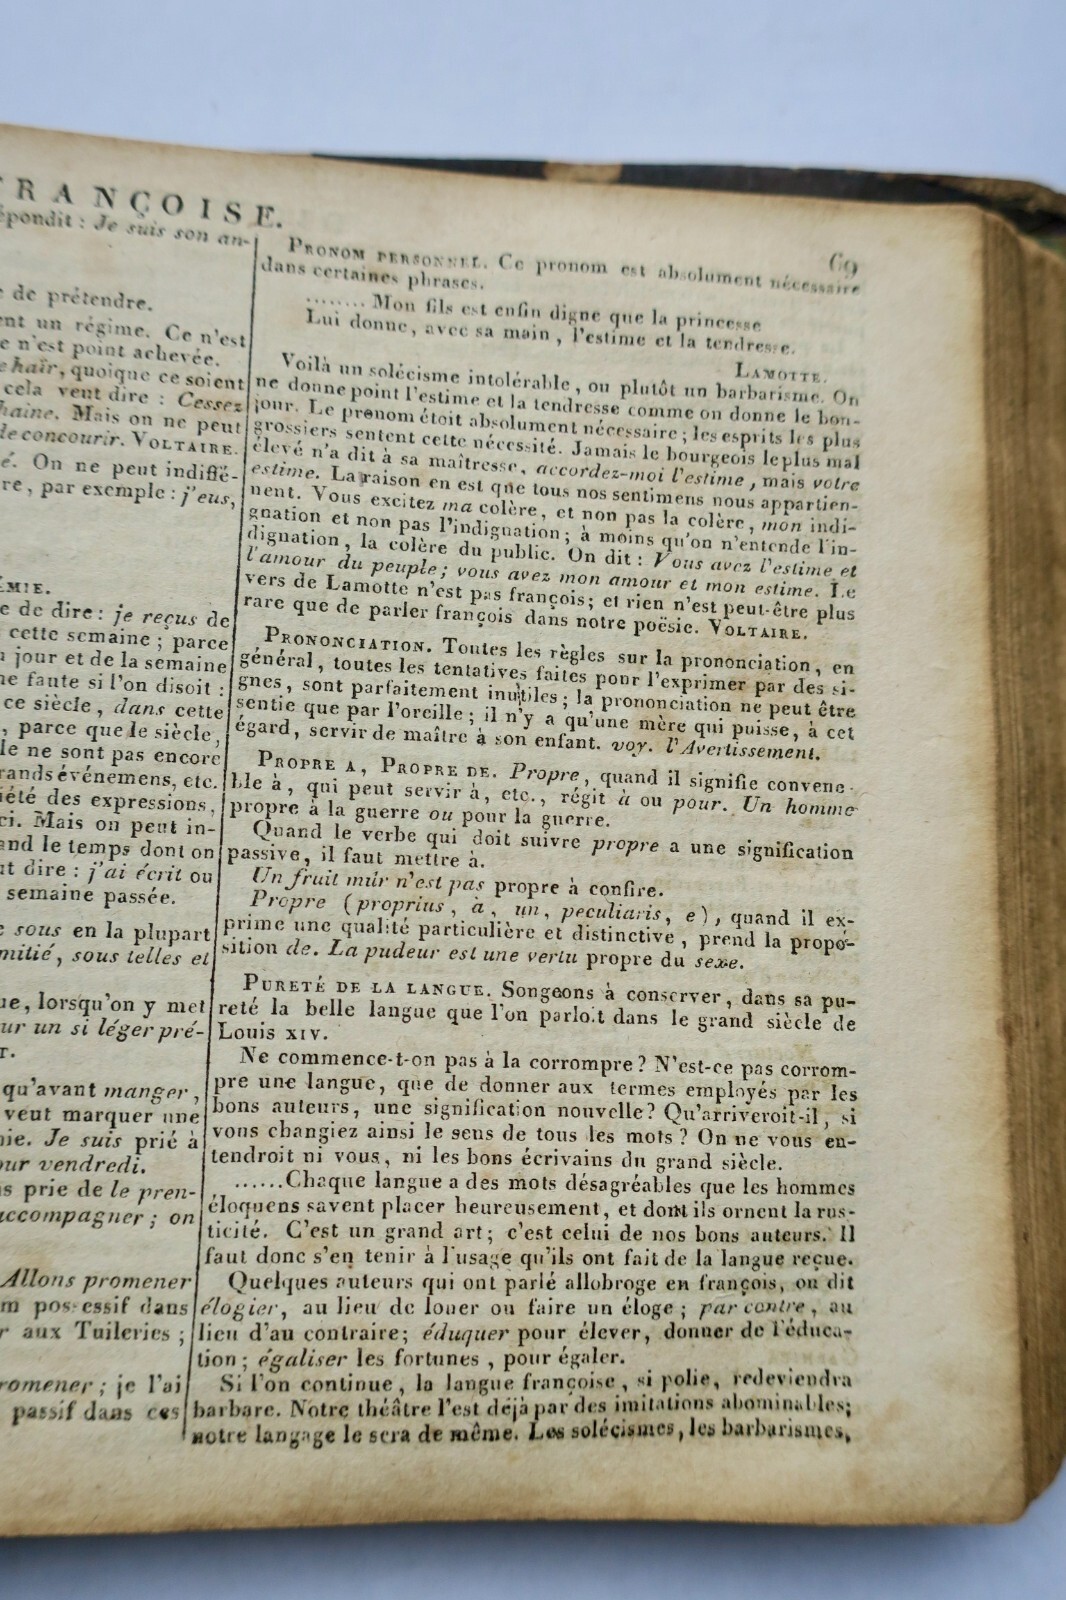 FRANÇOISE.
69
épondit : Je suis son an-
e de prétendre.
ent un régime. Ce n'est
e n'est point achevée.
e haïr, quoique ce soient
cela veut dire : Cessez
haine. Mais on ne peut
de concourir. VOLTAIRE.
é. On ne peut indiffé-
re, par exemple : j'eus,
ÉMIE.
e de dire : je reçus de
cette semaine ; parce
u jour et de la semaine
ne faute si l'on disoit :
ce siècle, dans cette
, parce que le siècle,
le ne sont pas encore
grands événemens, etc.
iété des expressions,
ci. Mais on peut in-
and le temps dont on
ut dire : j'ai écrit ou
semaine passée.
e sous en la plupart
mitié, sous telles et
ue, lorsqu'on y met
ur un si léger pré-
r.
qu'avant manger,
veut marquer une
nie. Je suis prié à
our vendredi.
s prie de le pren-
accompagner ; on
Allons promener
m possessif dans
r aux Tuileries ;
romener ; je l'ai
passif dans ces
PRONOM PERSONNEL. Ce pronom est absolument nécessaire
dans certaines phrases.
........ Mon fils est enfin digne que la princesse
Lui donne, avec sa main, l'estime et la tendresse.
LAMOTTE.
Voilà un solécisme intolérable, ou plutôt un barbarisme. On
ne donne point l'estime et la tendresse comme on donne le bon-
jour. Le pronom étoit absolument nécessaire ; les esprits les plus
grossiers sentent cette nécessité. Jamais le bourgeois le plus mal
élevé n'a dit à sa maîtresse, accordez-moi l'estime, mais votre
estime. La raison en est que tous nos sentimens nous appartien-
nent. Vous excitez ma colère, et non pas la colère, mon indi-
gnation et non pas l'indignation ; à moins qu'on n'entende l'in-
dignation, la colère du public. On dit : Vous avez l'estime et
l'amour du peuple ; vous avez mon amour et mon estime. Le
vers de Lamotte n'est pas françois ; et rien n'est peut-être plus
rare que de parler françois dans notre poësie. VOLTAIRE.
PRONONCIATION. Toutes les règles sur la prononciation, en
général, toutes les tentatives faites pour l'exprimer par des si-
gnes, sont parfaitement inutiles ; la prononciation ne peut être
sentie que par l'oreille ; il n'y a qu'une mère qui puisse, à cet
égard, servir de maître à son enfant. voy. l'Avertissement.
PROPRE A, PROPRE DE. Propre, quand il signifie convena-
ble à, qui peut servir à, etc., régit à ou pour. Un homme
propre à la guerre ou pour la guerre.
Quand le verbe qui doit suivre propre a une signification
passive, il faut mettre à.
Un fruit mûr n'est pas propre à confire.
Propre (proprius, a, un, peculiaris, e), quand il ex-
prime une qualité particulière et distinctive, prend la propo-
sition de. La pudeur est une vertu propre du sexe.
PURETÉ DE LA LANGUE. Songeons à conserver, dans sa pu-
reté la belle langue que l'on parloit dans le grand siècle de
Louis XIV.
Ne commence-t-on pas à la corrompre ? N'est-ce pas corrom-
pre une langue, que de donner aux termes employés par les
bons auteurs, une signification nouvelle ? Qu'arriveroit-il, si
vous changiez ainsi le sens de tous les mots ? On ne vous en-
tendroit ni vous, ni les bons écrivains du grand siècle.
......Chaque langue a des mots désagréables que les hommes
éloquens savent placer heureusement, et dont ils ornent la rus-
ticité. C'est un grand art ; c'est celui de nos bons auteurs. Il
faut donc s'en tenir à l'usage qu'ils ont fait de la langue reçue.
Quelques auteurs qui ont parlé allobroge en françois, ou dit
élogier, au lieu de louer ou faire un éloge ; par contre, au
lieu d'au contraire ; éduquer pour élever, donner de l'éduca-
tion ; égaliser les fortunes, pour égaler.
Si l'on continue, la langue françoise, si polie, redeviendra
barbare. Notre théâtre l'est déjà par des imitations abominables ;
notre langage le sera de même. Les solécismes, les barbarismes,